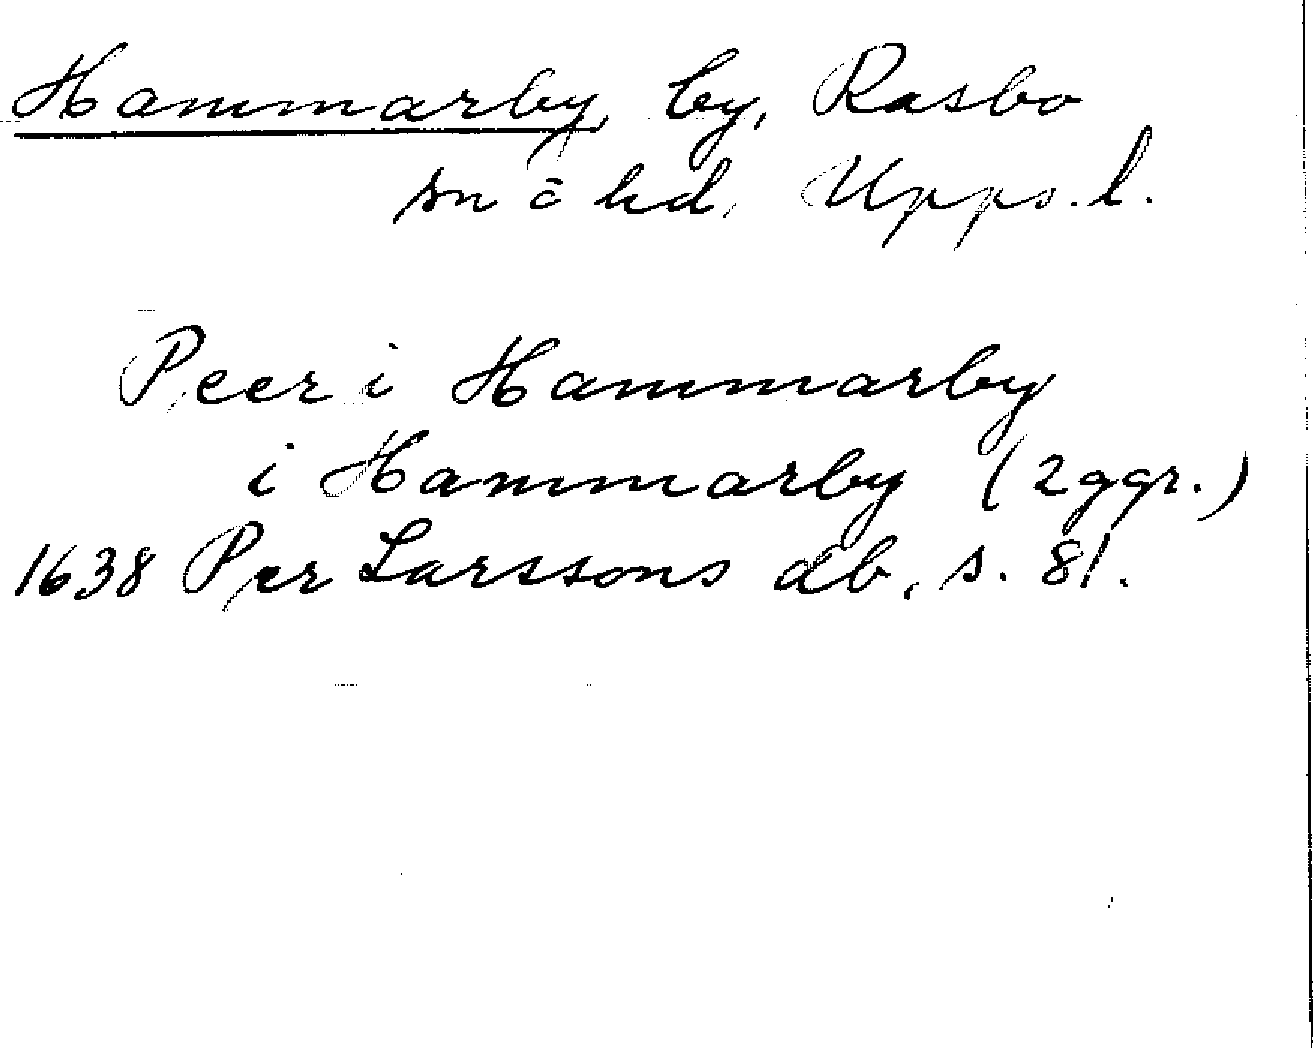 Hammarby, by, Rasbo
sn o hd, Upps. l.
Peer i Hammarby
i Hammarby (2 ggr.)
1638 Per Larssons db, s. 81.